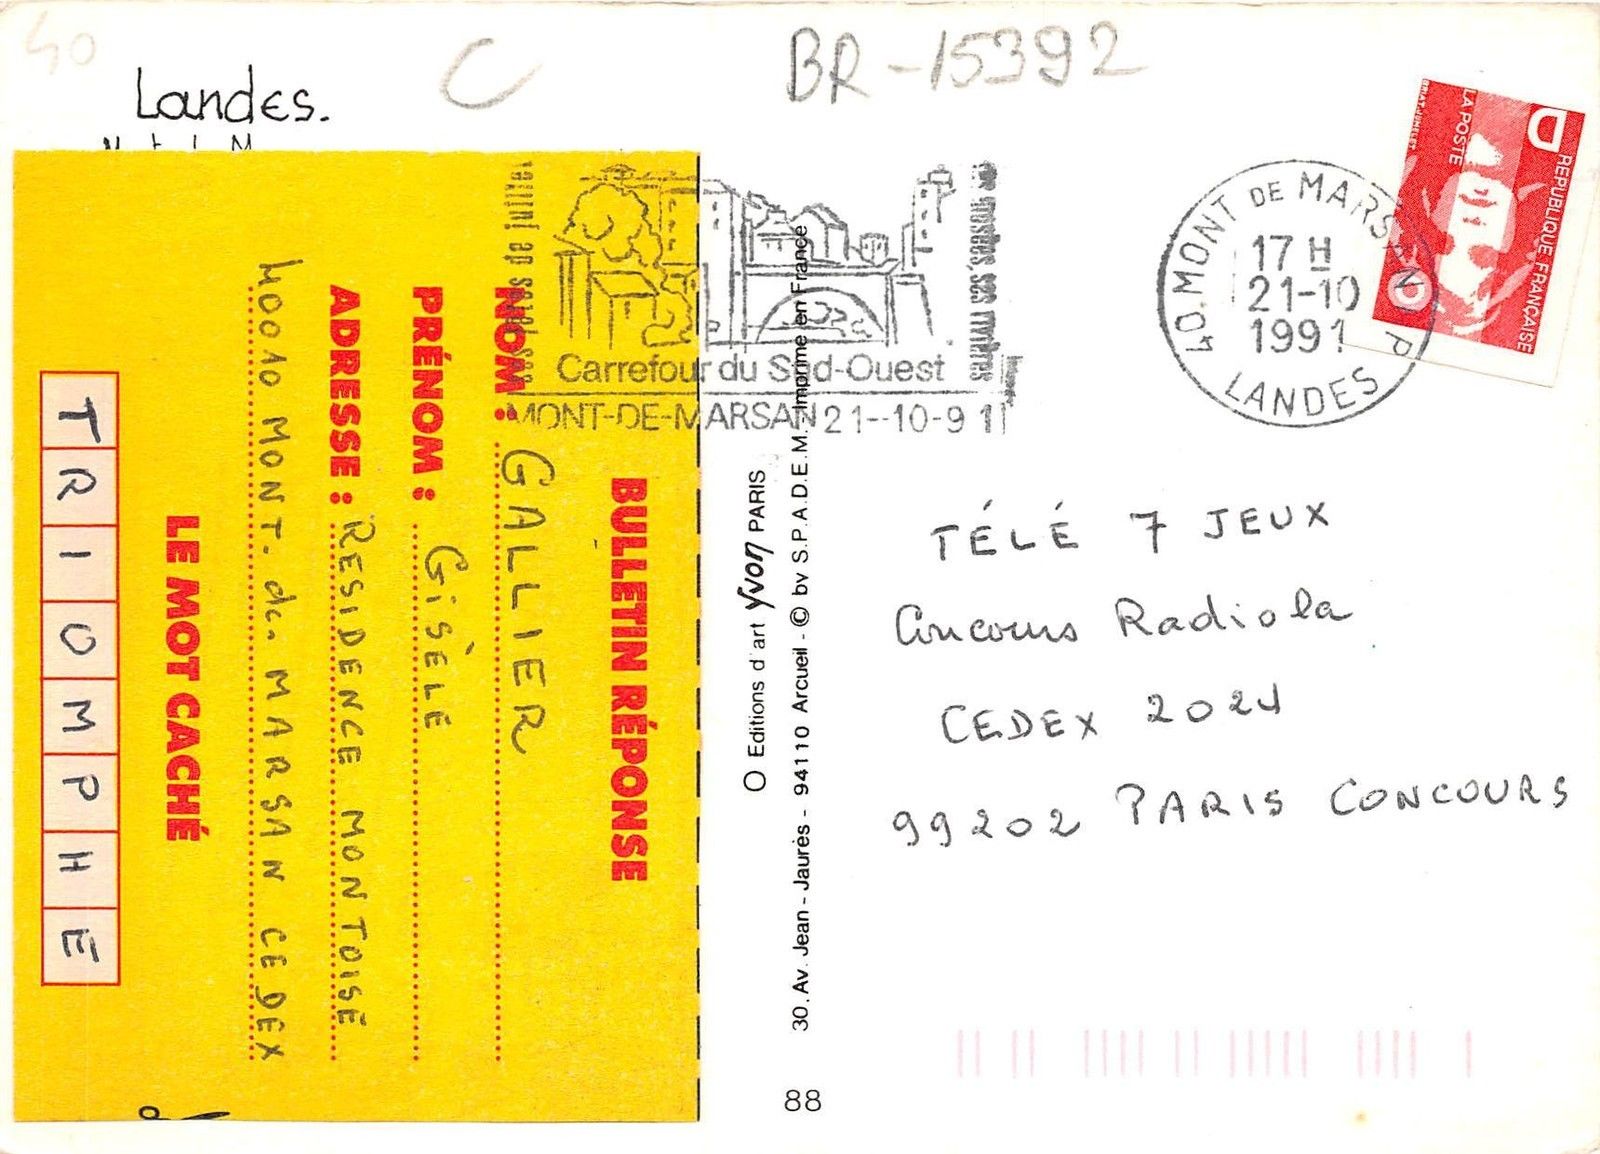 40
Landes.
C
BR-15392
BULLETIN RÉPONSE
NOM : GALLIER
PRÉNOM : GiSÈLE
ADRESSE : RESIDENCE MONTOISE
40010 MONT. de. MARSAN CEDEX
LE MOT CACHÉ
TRIOMPHE
Carrefour du Sud-Ouest
MONT-DE-MARSAN 21--10-91
ses rivières
O Editions d'art Yvon PARIS
30. Av. Jean - Jaurès - 94110 Arcueil - © by S.P.A.D.E.M. - Imprimé en France
88
40.MONT DE MARSAN P
17 H
21-10
1991
LANDES
D
REPUBLIQUE FRANÇAISE
LA POSTE
TÉLÉ 7 JEUX
Concours Radiola
CEDEX 2024
99202 PARIS CONCOURS